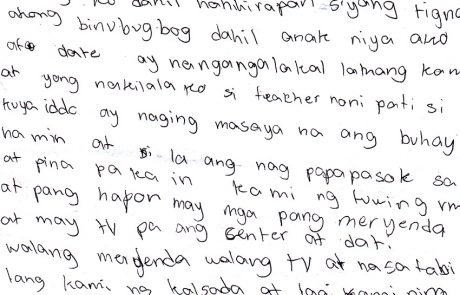 ko dahil nahihirapan siyang tigna
akong binubugbog dahil anak niya ako
ate date ay nangangalakal lamang kam
at yong nakilala ko si teacher noni pati si
kuya iddc ay naging masaya na ang buhay
na min at si la ang nag papapasok sa
at pina pa ka in kami ng tuwing um
at pang hapon may mga pang meryenda
at may tv pa ang center at dati
walang meryenda walang tv at nasa tabi
lang kami ng kalsada at lagi kami nim